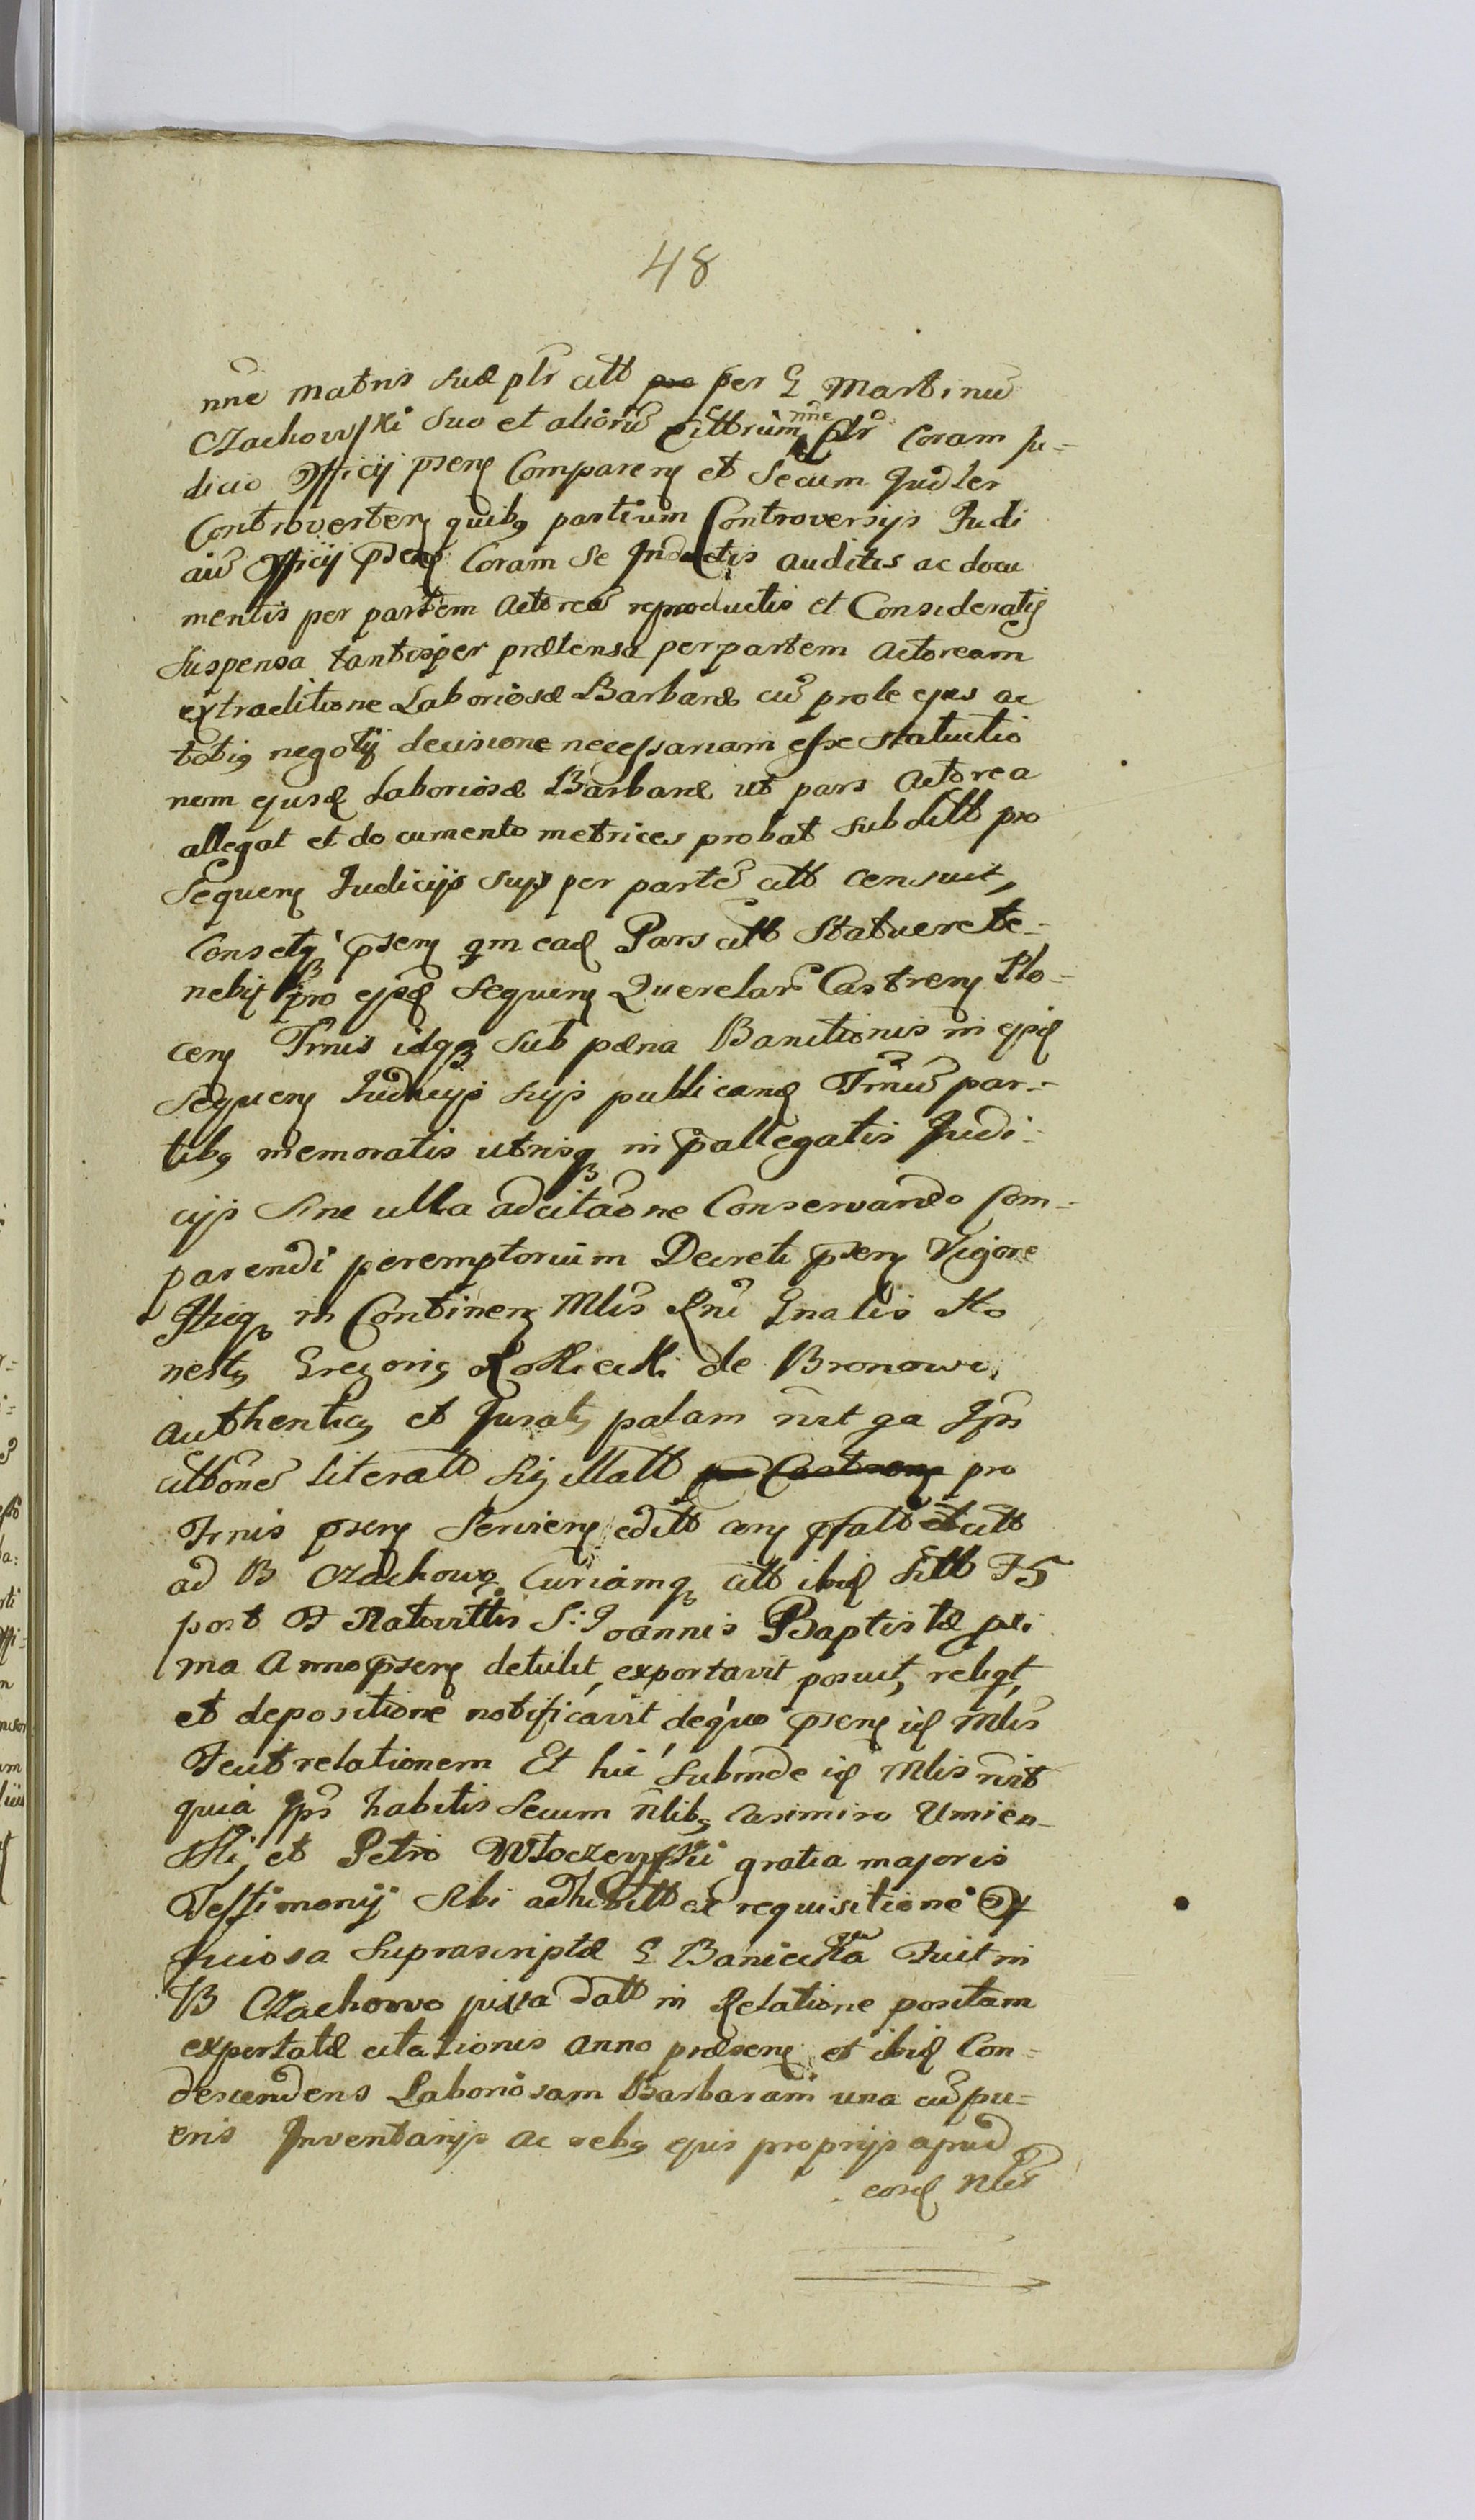 48
nne matris suæ plr citt per G Martinu
Czachowski suo et alioru Cittorum nne plr Coram Ju-
dicio Officij psenz Comparenz et Secum Judler
Controvertenz quibz partium Controversijs Judi
ciu Officij psenz Coram se Inductis auditis ac docu
mentis per partem Actorea reproductis et Consideratis
suspensa tantisper prætensa per partem Actoream
extraditione Laboriosæ Barbaræ cu prole ejus ac
totiz negotij decisione necessariam esse statuitio
nem ejusd Laboriosæ Barbaræ ut pars Actorea
allegat et documento metrices probat subditt pro
Sequenz Judicijs suis per parte citt censuit,
Consetqz psenz qm ead Pars citt Statuere te-
nebit pro ejsd Sequenz Querelar Castrenz Plo-
cenz Trnis idqz sub pæna Banitionis in ejsd
Sequenz Judicijs sijs publicand Trmu par-
tibz memoratis utrisqz in pallegatis Judi-
cijs Sine ulla adcitaone Conservando Com-
parendi peremptorium Decreti psenz Vigore
Itreqz in Continenz Mlis Rni Gnalis Ho
nestz Gregoriz de Bronowi
authenticz et Juratz palam nrt ga Ips
cittone literatt Sigillatt pro
Trnis psenz Servienz editt cenz psatt et citt
ad B Czachowo Curiamqz citt ibid Sitt F5
post F Natovittis S: Joannis Baptistæ pri
ma Anno psenz detulit, exportavit posuit, reliqt,
et depositione notificavit de quo psenz id Mlis
Fecit relationem Et hic subinde id Mlis nrit
quia Ips habitis secum nlibz Casimiro Umien-
ski, et Petro Włoczewski gratia majoris
Testimonij Sibi adhibitt ex requisitione Of
ficiosa suprascriptæ G Banieckia Fuit in
B Czachowo juxta datt in Relatione positam
exportatæ citationis Anno præsenz et ibid Con-
descendens Laboriosam Barbaram una cu pu-
eris Inventarijs ac rebz ejus proprijs apud
eosd